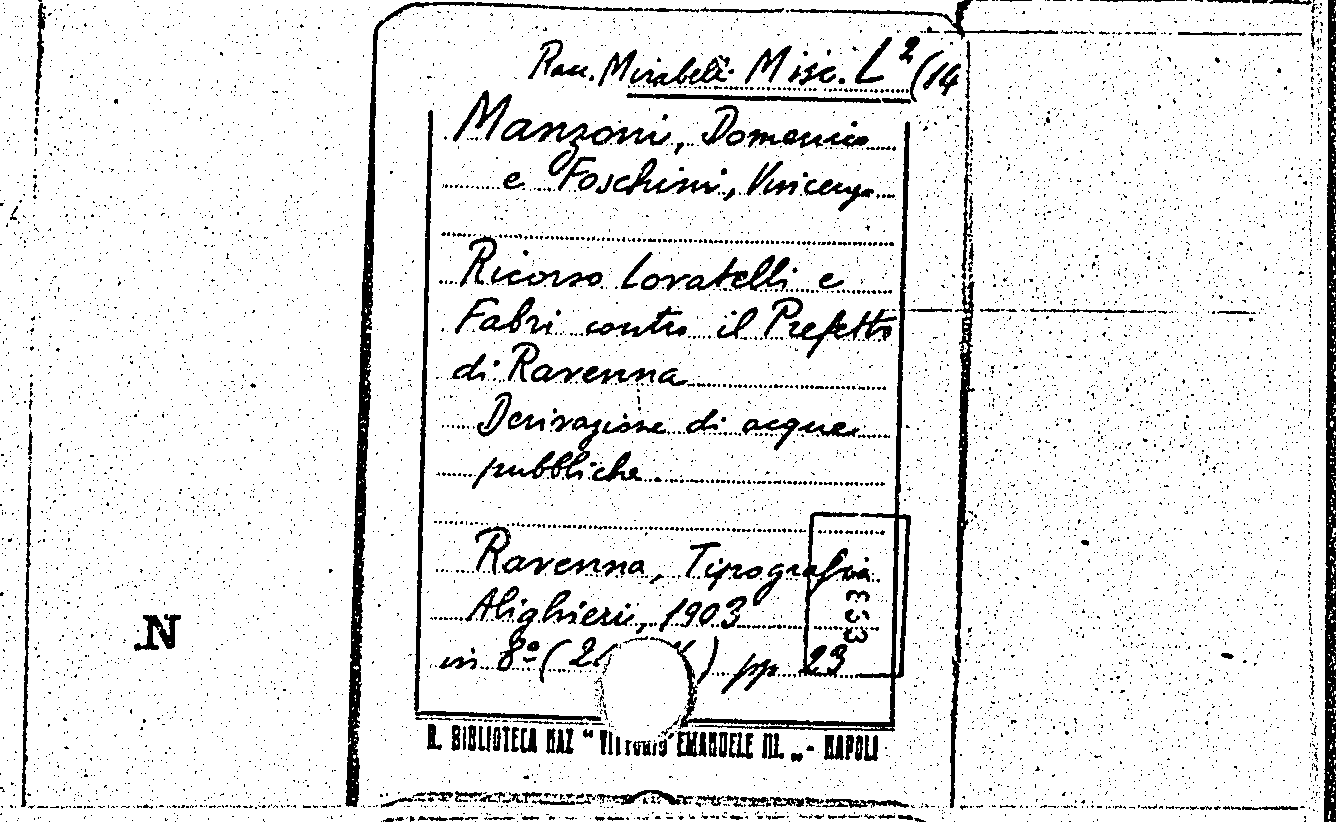 Racc. Mirabelli Misc. L² (14
Manzoni, Domenico
e Foschini, Vincenzo
Ricorso Lovatelli e
Fabri contro il Prefetto
di Ravenna
Derivazione di acque
pubbliche.
Ravenna, Tipografia
Alighieri, 1903
in 8º ( ) pp 23
R. BIBLIOTECA NAZ " VITTORIO EMANUELE III. „ - NAPOLI
.N